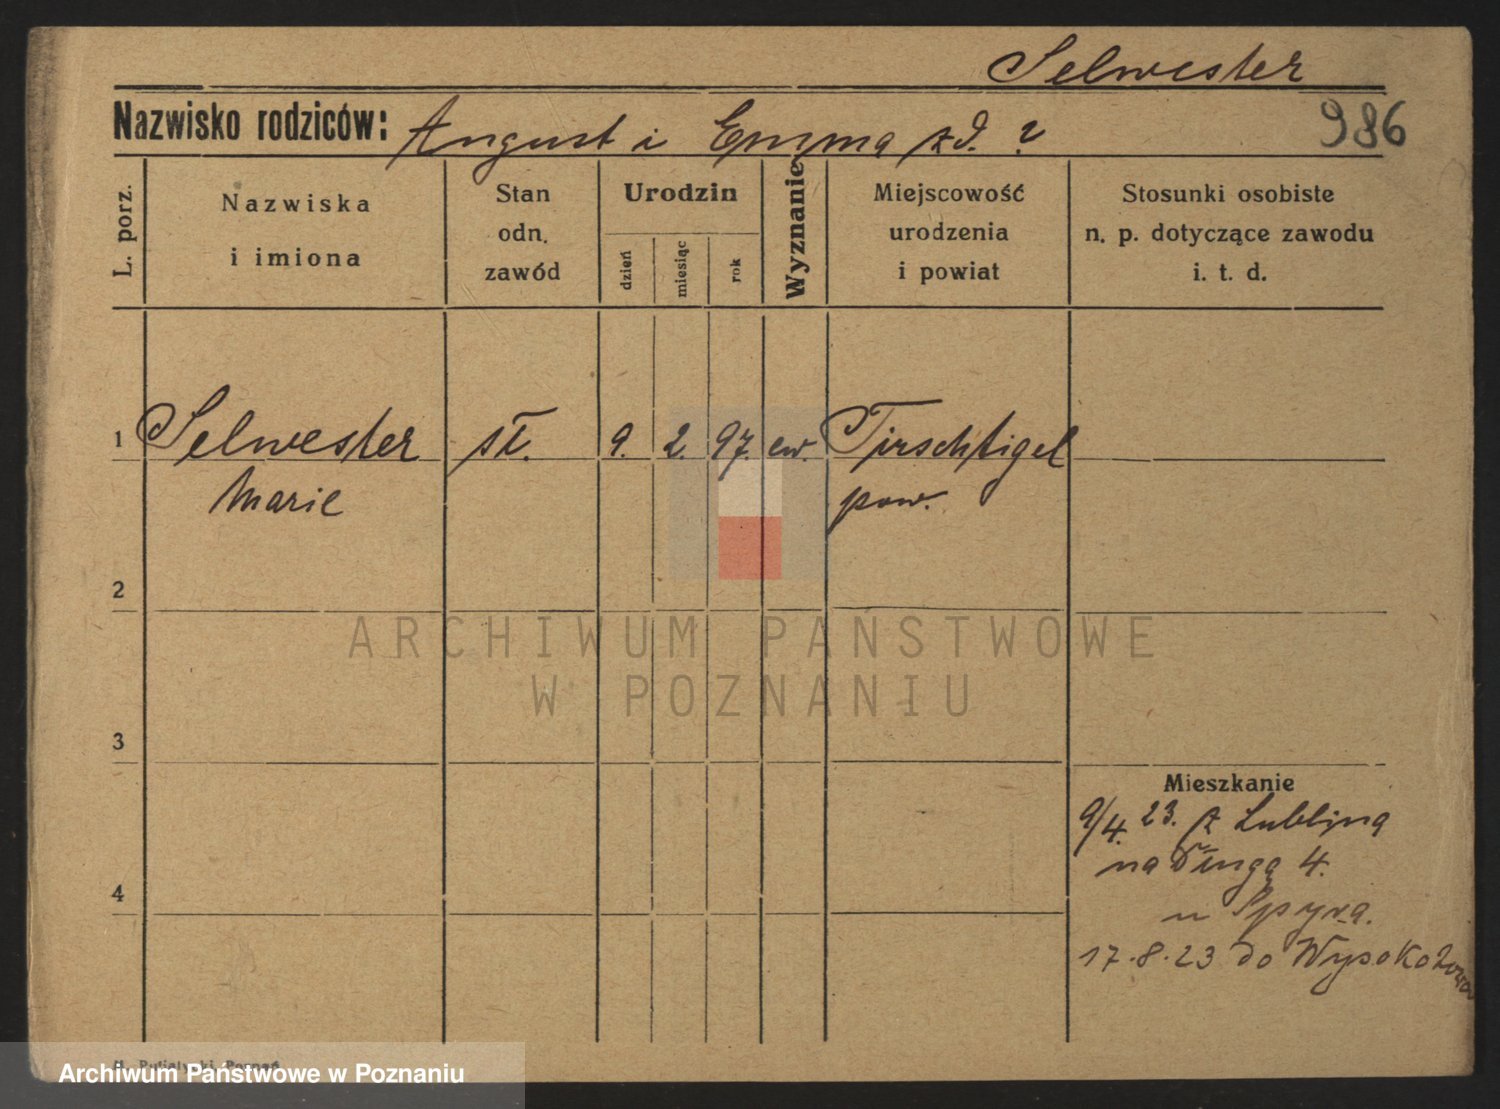 Selwester
Nazwisko rodziców: August i Emma zd. ?
986
L. porz.
Nazwiska
i imiona
Stan
odn.
zawód
Urodzin
dzień
miesiąc
rok
Wyznanie
Miejscowość
urodzenia
i powiat
Stosunki osobiste
n. p. dotyczące zawodu
i. t. d.
1 Selwester st. 9. 2. 97. ew. Tirschtigel
Marie pow.
2
ARCHIWUM PAŃSTWOWE
W POZNANIU
3
Mieszkanie
9/4. 23. z Lublina
na 4.
4
u Spyra.
17.8.23 do
Poznań
Archiwum Państwowe w Poznaniu